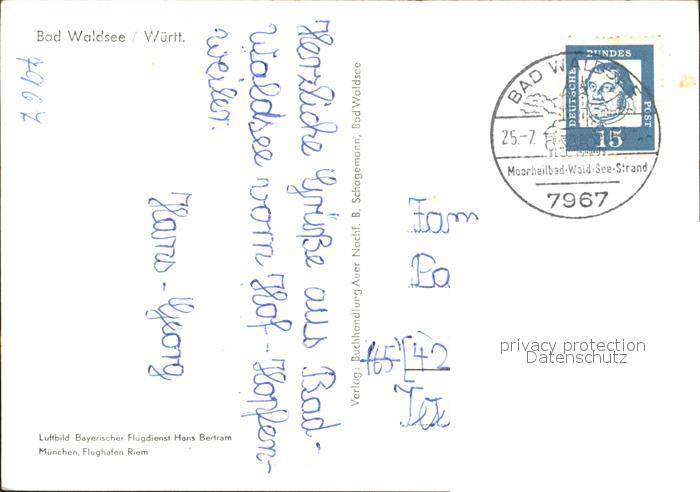 Bad Waldsee / Württ.
7967
Herzliche Grüße aus Bad-
Waldsee vom Hof-Hopfen-
weiler.
Hans-Georg
Verlag: Buchhandlung Auer Nachf. B. Schagemann, Bad Waldsee
Luftbild Bayerischer Flugdienst Hans Bertram
München, Flughafen Riem
BAD WALDSEE
25.-7.
Moorheilbad-Wald-See-Strand
7967
DEUTSCHE BUNDES POST
15
Fam
privacy protection
Datenschutz